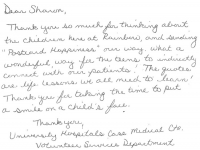 Dear Sharon,
Thank you so much for thinking about
the children here at Rainbow, and sending
"Postcard Happiness" our way, what a
wonderful way for the teens to indirectly
connect with our patients! The quotes
are life lessons we all need to learn!
Thank you for taking the time to put
a smile on a child's face.
Thank you,
University Hospitals Case Medical Ctr.
Volunteer Services Department